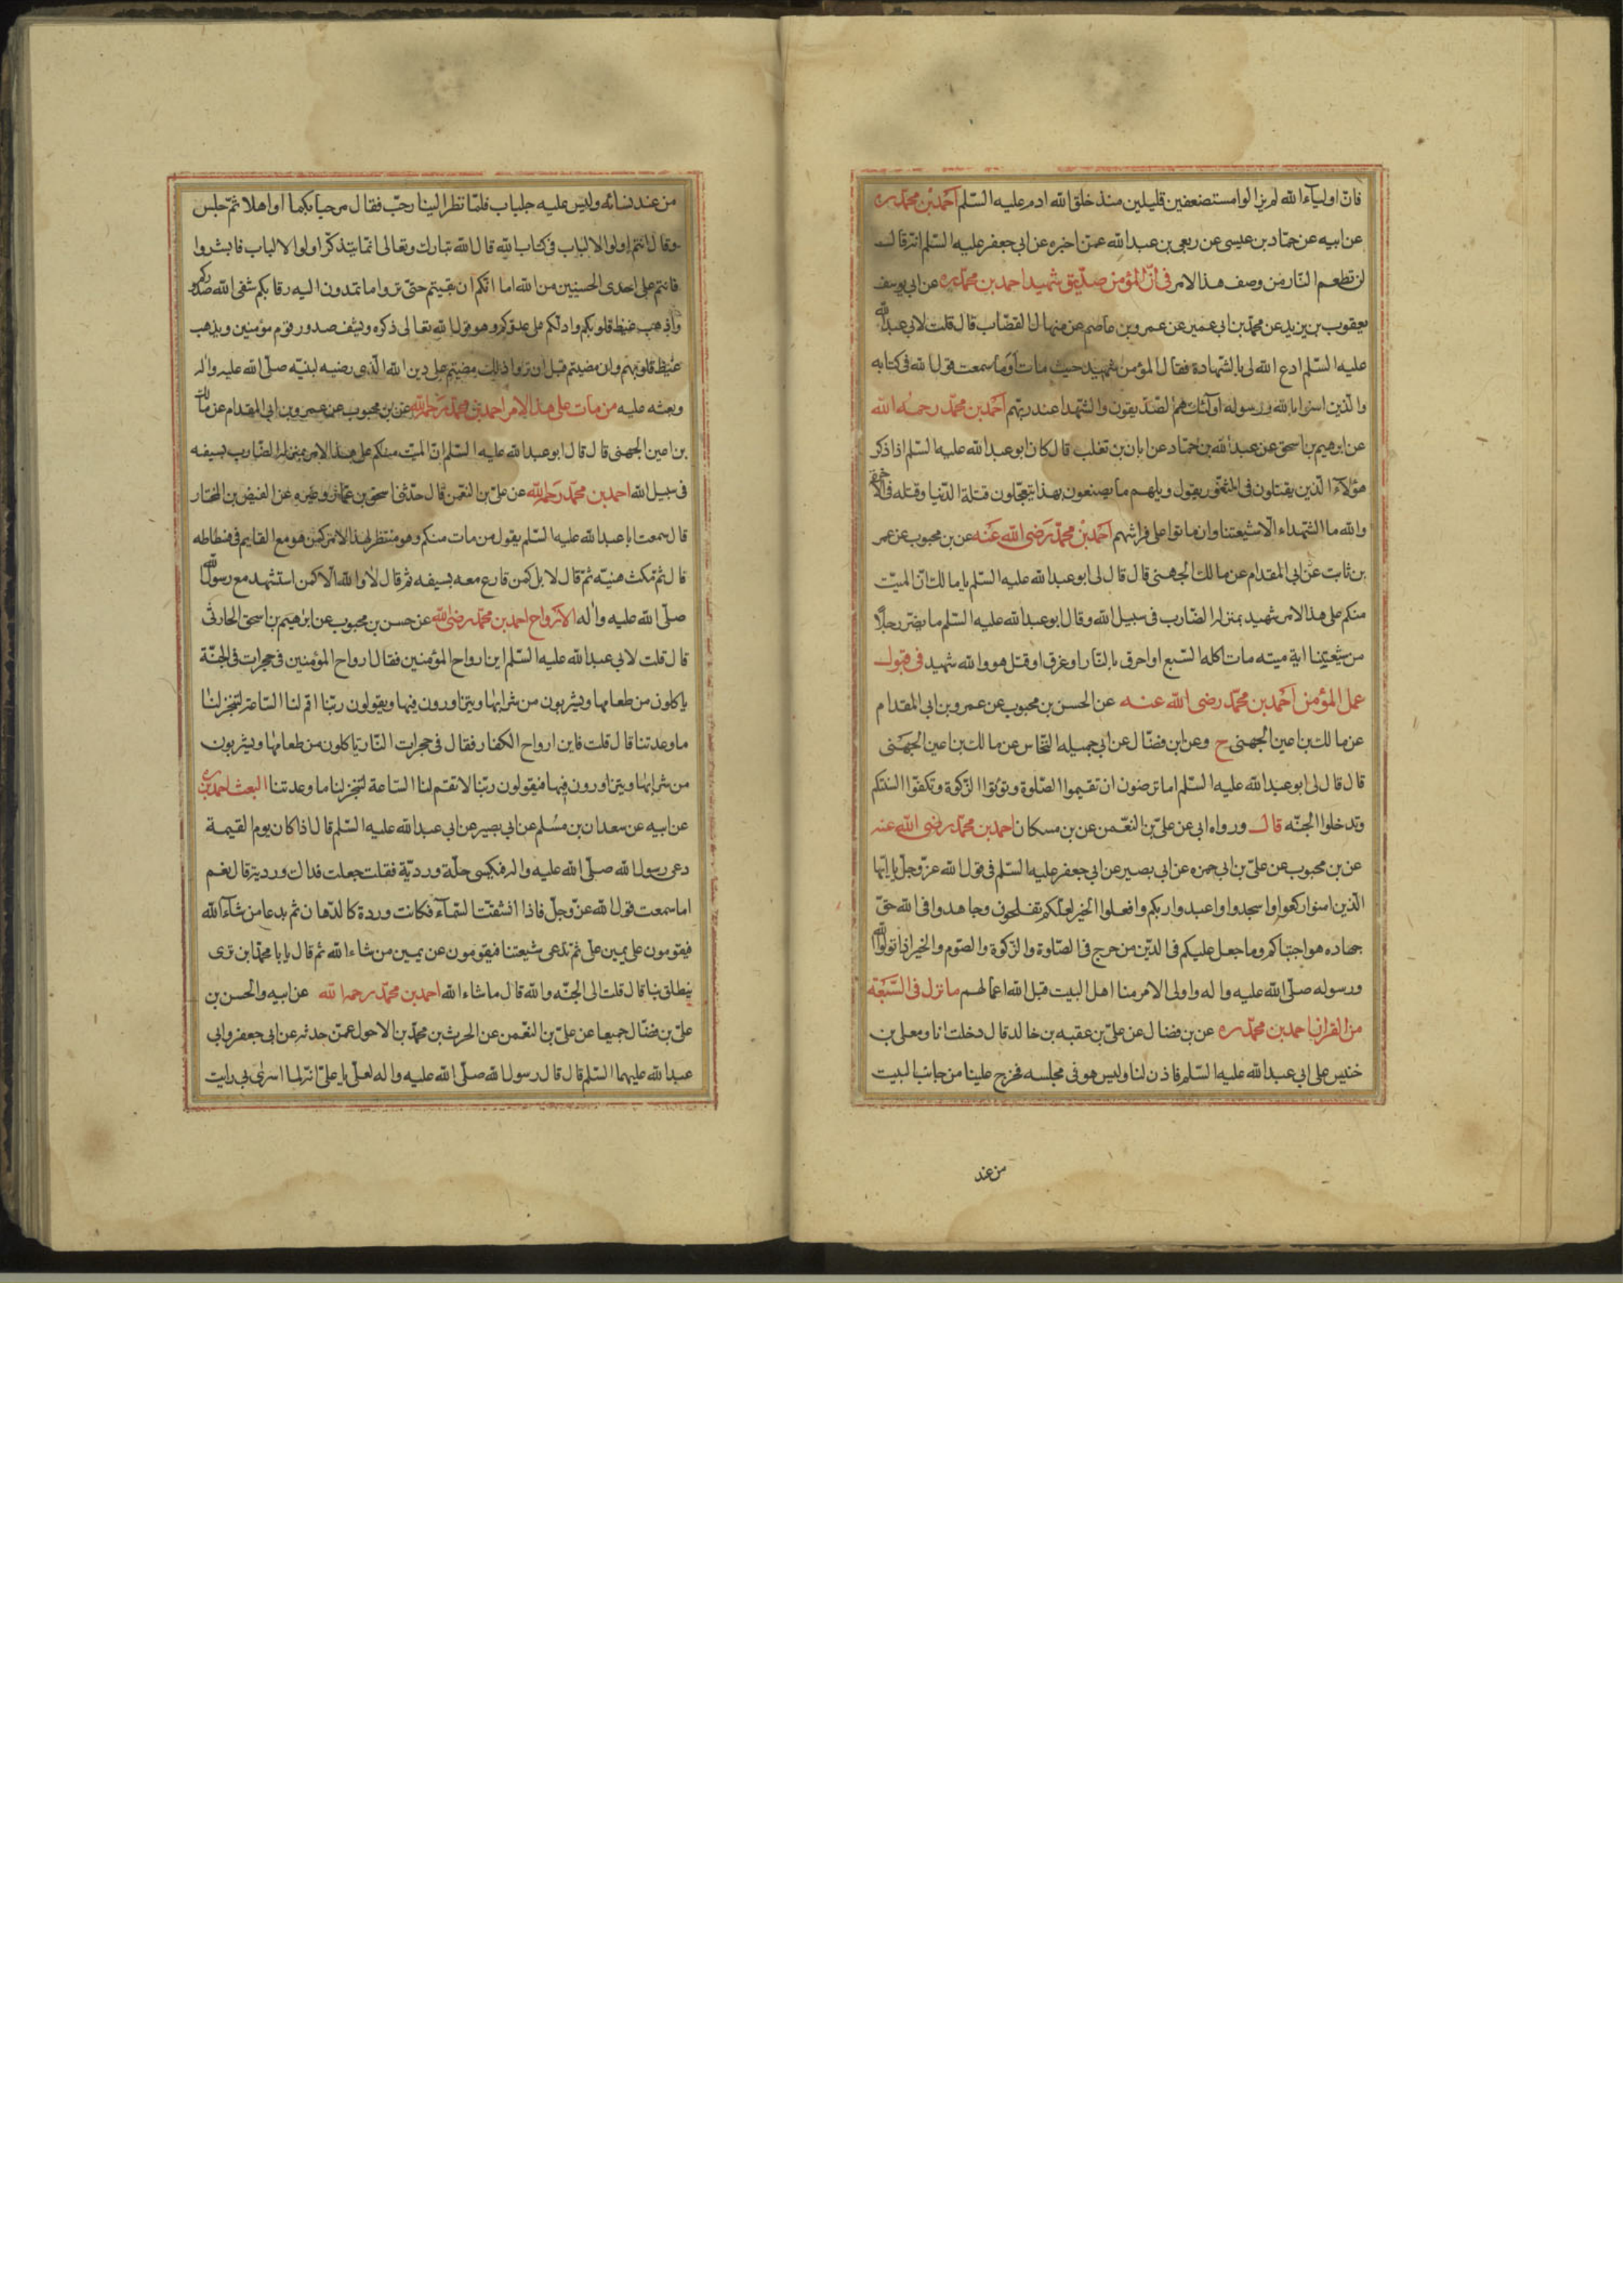 فانّ اولياء الله لم يزالوا مستضعفين قليلين منذ خلق الله ادم عليه السّلم احمد بن محمّد ره
عن ابيه عن حمّاد بن عيسى عن ربعى بن عبد الله عمّن اخبره عن ابى جعفر عليه السّلم انّه قال
لن تطعم النّار من وصف هذا الامر فى انّ المؤمن صدّيق شهيد احمد بن محمّد ره عن ابى يوسف
يعقوب بن يزيد عن محمّد بن ابى عمير عن عمرو بن عاصم عن منهال القصّاب قال قلت لابى عبد الله
عليه السّلم ادع الله لى بالشهادة فقال المؤمن شهيد حيث مات اوما سمعت قول الله فى كتابه
والّذين امنوا بالله ورسوله اولئك هم الصّدّيقون والشّهدا عند ربّهم احمد بن محمّد رحمه الله
عن ابرهيم بن اسحق عن عبد الله بن حمّاد عن ابان بن تغلب قال كان ابو عبد الله عليه السّلم اذا ذكر
هؤلاء الّذين يقتلون فى الثغور يقول ويلهم ما يصنعون بهذا يتعجّلون قتلة الدّنيا وقتله فى الاخرة
والله ما الشّهداء الّا شيعتنا وان ماتوا على فراشهم احمد بن محمّد رضى الله عنه عن بن محبوب عن عمر
بن ثابت عن ابى المقدام عن مالك الجهنى قال قال لى ابو عبد الله عليه السّلم يا مالك انّ الميّت
منكم على هذا الامر شهيد بمنزله الضّارب فى سبيل الله وقال ابو عبد الله عليه السّلم ما يضرّ رجلا
من شيعتنا اية ميته مات اكله السّبع او احرق بالنّار او غرق او قتل هو والله شهيد فى قبول
عمل المؤمن احمد بن محمّد رضى الله عنه عن الحسن بن محبوب عن عمرو بن ابى المقدام
عن مالك بن اعين الجهنى ح وعن ابن فضّال عن ابى جميله النّحاس عن مالك بن اعين الجهنى
قال قال لى ابو عبد الله عليه السّلم اما ترضون ان تقيموا الصّلوة وتؤتوا الزّكوة وتكفّوا السنتكم
وتدخلوا الجنّه قال ورواه ابى عن علىّ بن النعمن عن بن مسكان احمد بن محمّد رضى الله عنه
عن بن محبوب عن علىّ بن ابى حمزه عن ابى بصير عن ابى جعفر عليه السّلم فى قول الله عزّ وجلّ يا ايّها
الّذين امنوا اركعوا واسجدوا واعبدوا ربكم وافعلوا الخير لعلّكم تفلحون وجاهدوا فى الله حقّ
جهاده هو اجتباكم وما جعل عليكم فى الدّين من حرج فى الصّلوة والزّكوة والصّوم والخير اذا تولّوا الله
ورسوله صلّى الله عليه واله واولى الامر منا اهل البيت قبل الله اعمالهم ما نزل فى الشّيعة
من القران احمد بن محمّد ره عن بن فضال عن علىّ بن عقبه بن خالد قال دخلت انا ومعلى بن
خنيس على ابى عبد الله عليه السّلم فاذن لنا وليس هو فى مجلسه فخرج علينا من جانب البيت
من عند
من عند نسائه وليس عليه جلباب فلمّا نظر الينا رحّب فقال مرحبا بكما واهلا ثمّ جلس
وقال انتم اولوا الالباب فى كتاب الله قال الله تبارك وتعالى انّما يتذكّر اولوا الالباب فابشروا
فانتم على احدى الحسنيين من الله اما انّكم ان بقيتم حتّى تروا ما تمدون اليه رقابكم شفى الله صدوركم
واذهب غيظ قلوبكم وادالكم على عدوّكم وهو قول الله تعالى ذكره ويشف صدور قوم مؤمنين ويذهب
غيظ قلوبهم وان مضيتم قبل ان تروا ذلك مضيتم على دين الله الّذى رضيه لنبيّه صلّى الله عليه واله
وبعثه عليه من مات على هذا الامر احمد بن محمّد رحمه الله عن بن محبوب عن عمرو بن ابى المقدام عن مالك
بن اعين الجهنى قال قال ابو عبد الله عليه السّلم انّ الميّت منكم على هذا الامر بمنزله الضّارب بسيفه
فى سبيل الله احمد بن محمّد رحمه الله عن علىّ بن النعمن قال حدّثنا اسحق بن عمّار وغيره عن الفيض بن المختار
قال سمعت ابا عبد الله عليه السّلم يقول من مات منكم وهو منتظر لهذا الامر كمن هو مع القايم فى فسطاطه
قال ثم مكث هنيئه ثمّ قال لا بل كمن قارع معه بسيفه ثم قال لا والله الّا كمن استشهد مع رسول الله
صلّى الله عليه واله الارواح احمد بن محمّد رضى الله عن حسن بن محبوب عن ابرهيم بن اسحق الجارثى
قال قلت لابى عبد الله عليه السّلم اين ارواح المؤمنين فقال ارواح المؤمنين فى حجرات فى الجنّة
ياكلون من طعامها ويشربون من شرابها ويتزاورون فيها ويقولون ربّنا اقم لنا السّاعه لتنجز لنا
ما وعدتنا قال قلت فاين ارواح الكفار فقال فى حجرات النّار ياكلون من طعامها ويشربون
من شرابها ويتزاورون فيها فيقولون ربّنا لا تقم لنا السّاعة لتنجز لنا ما وعدتنا البعث احمد بن
عن ابيه عن سعدان بن مسلم عن ابى بصير عن ابى عبد الله عليه السّلم قال اذا كان يوم القيمة
دعى رسول الله صلّى الله عليه واله فيكسى حلّة ورديّة فقلت جعلت فداك وردية قال نعم
اما سمعت قول الله عزّ وجلّ فاذا انشقّت السّماء فكانت وردة كالدّهان ثم يدعا من شاء الله
فيقومون على يمين علىّ ثمّ تدعى شيعتنا فيقومون عن يمين من شاء الله ثم قال يا با محمّد اين ترى
ينطلق بنا قال قلت الى الجنّه والله قال ما شاء الله احمد بن محمّد رحمه الله عن ابيه والحسن بن
علىّ بن فضّال جميعا عن علىّ بن النعمن عن الحرث بن محمّد بن الاحول عمّن حدثه عن ابى جعفر وابى
عبد الله عليهما السّلم قال قال رسول الله صلّى الله عليه واله لعلىّ يا علىّ انّه لما اسرى بى رايت